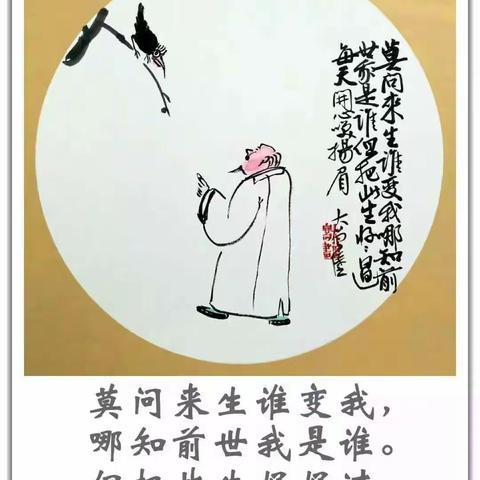 莫问来生谁变我哪知前
世我是谁但把此生好好过
每天开心喜扬眉
莫问来生谁变我，
哪知前世我是谁。
但把此生好好过